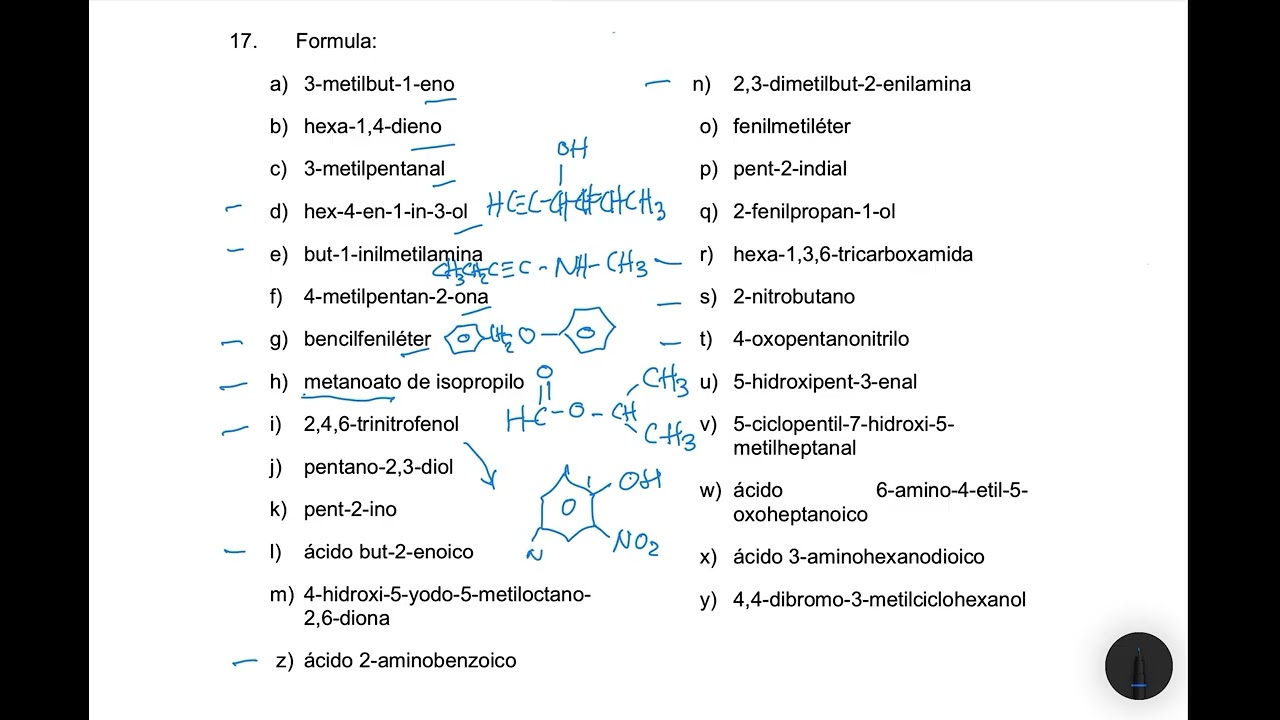 17. Formula:
a) 3-metilbut-1-eno
b) hexa-1,4-dieno
c) 3-metilpentanal
d) hex-4-en-1-in-3-ol
OH
HC≡C-CH-CH=CHCH3
e) but-1-inilmetilamina
CH3CH2C≡C-NH-CH3
f) 4-metilpentan-2-ona
g) bencilfeniléter
CH2 O
h) metanoato de isopropilo
O
CH3
HC-O-CH
CH3
i) 2,4,6-trinitrofenol
j) pentano-2,3-diol
OH
k) pent-2-ino
NO2
N
l) ácido but-2-enoico
m) 4-hidroxi-5-yodo-5-metiloctano-
2,6-diona
z) ácido 2-aminobenzoico
n) 2,3-dimetilbut-2-enilamina
o) fenilmetiléter
p) pent-2-indial
q) 2-fenilpropan-1-ol
r) hexa-1,3,6-tricarboxamida
s) 2-nitrobutano
t) 4-oxopentanonitrilo
u) 5-hidroxipent-3-enal
v) 5-ciclopentil-7-hidroxi-5-
metilheptanal
w) ácido 6-amino-4-etil-5-
oxoheptanoico
x) ácido 3-aminohexanodioico
y) 4,4-dibromo-3-metilciclohexanol